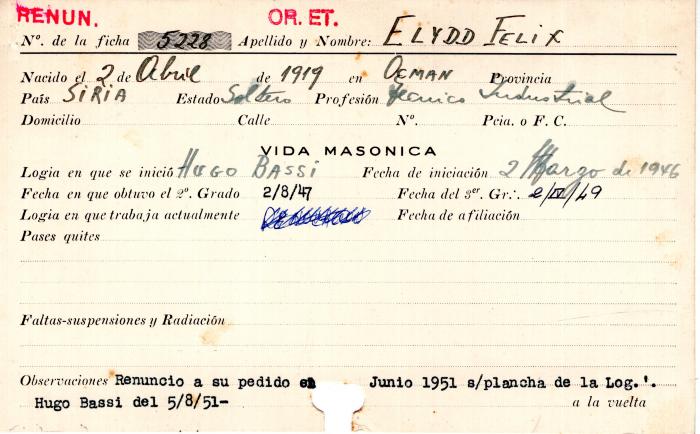 RENUN. OR. ET.
Nº. de la ficha 5228 Apellido y Nombre: ELYDD FELIX
Nacido el 2 de Abril de 1919 en OEMAN Provincia
País SIRIA Estado Soltero Profesión técnico Industrial
Domicilio Calle Nº. Pcia. o F. C.
VIDA MASONICA
Logia en que se inició HUGO BASSI Fecha de iniciación 2 Marzo de 1946
Fecha en que obtuvo el 2º. Grado 2/8/47 Fecha del 3er. Gr∴. 2/IV/49
Logia en que trabaja actualmente Fecha de afiliación
Pases quites
Faltas-suspensiones y Radiación
Observaciones Renuncio a su pedido en Junio 1951 s/plancha de la Log.'.
Hugo Bassi del 5/8/51- a la vuelta